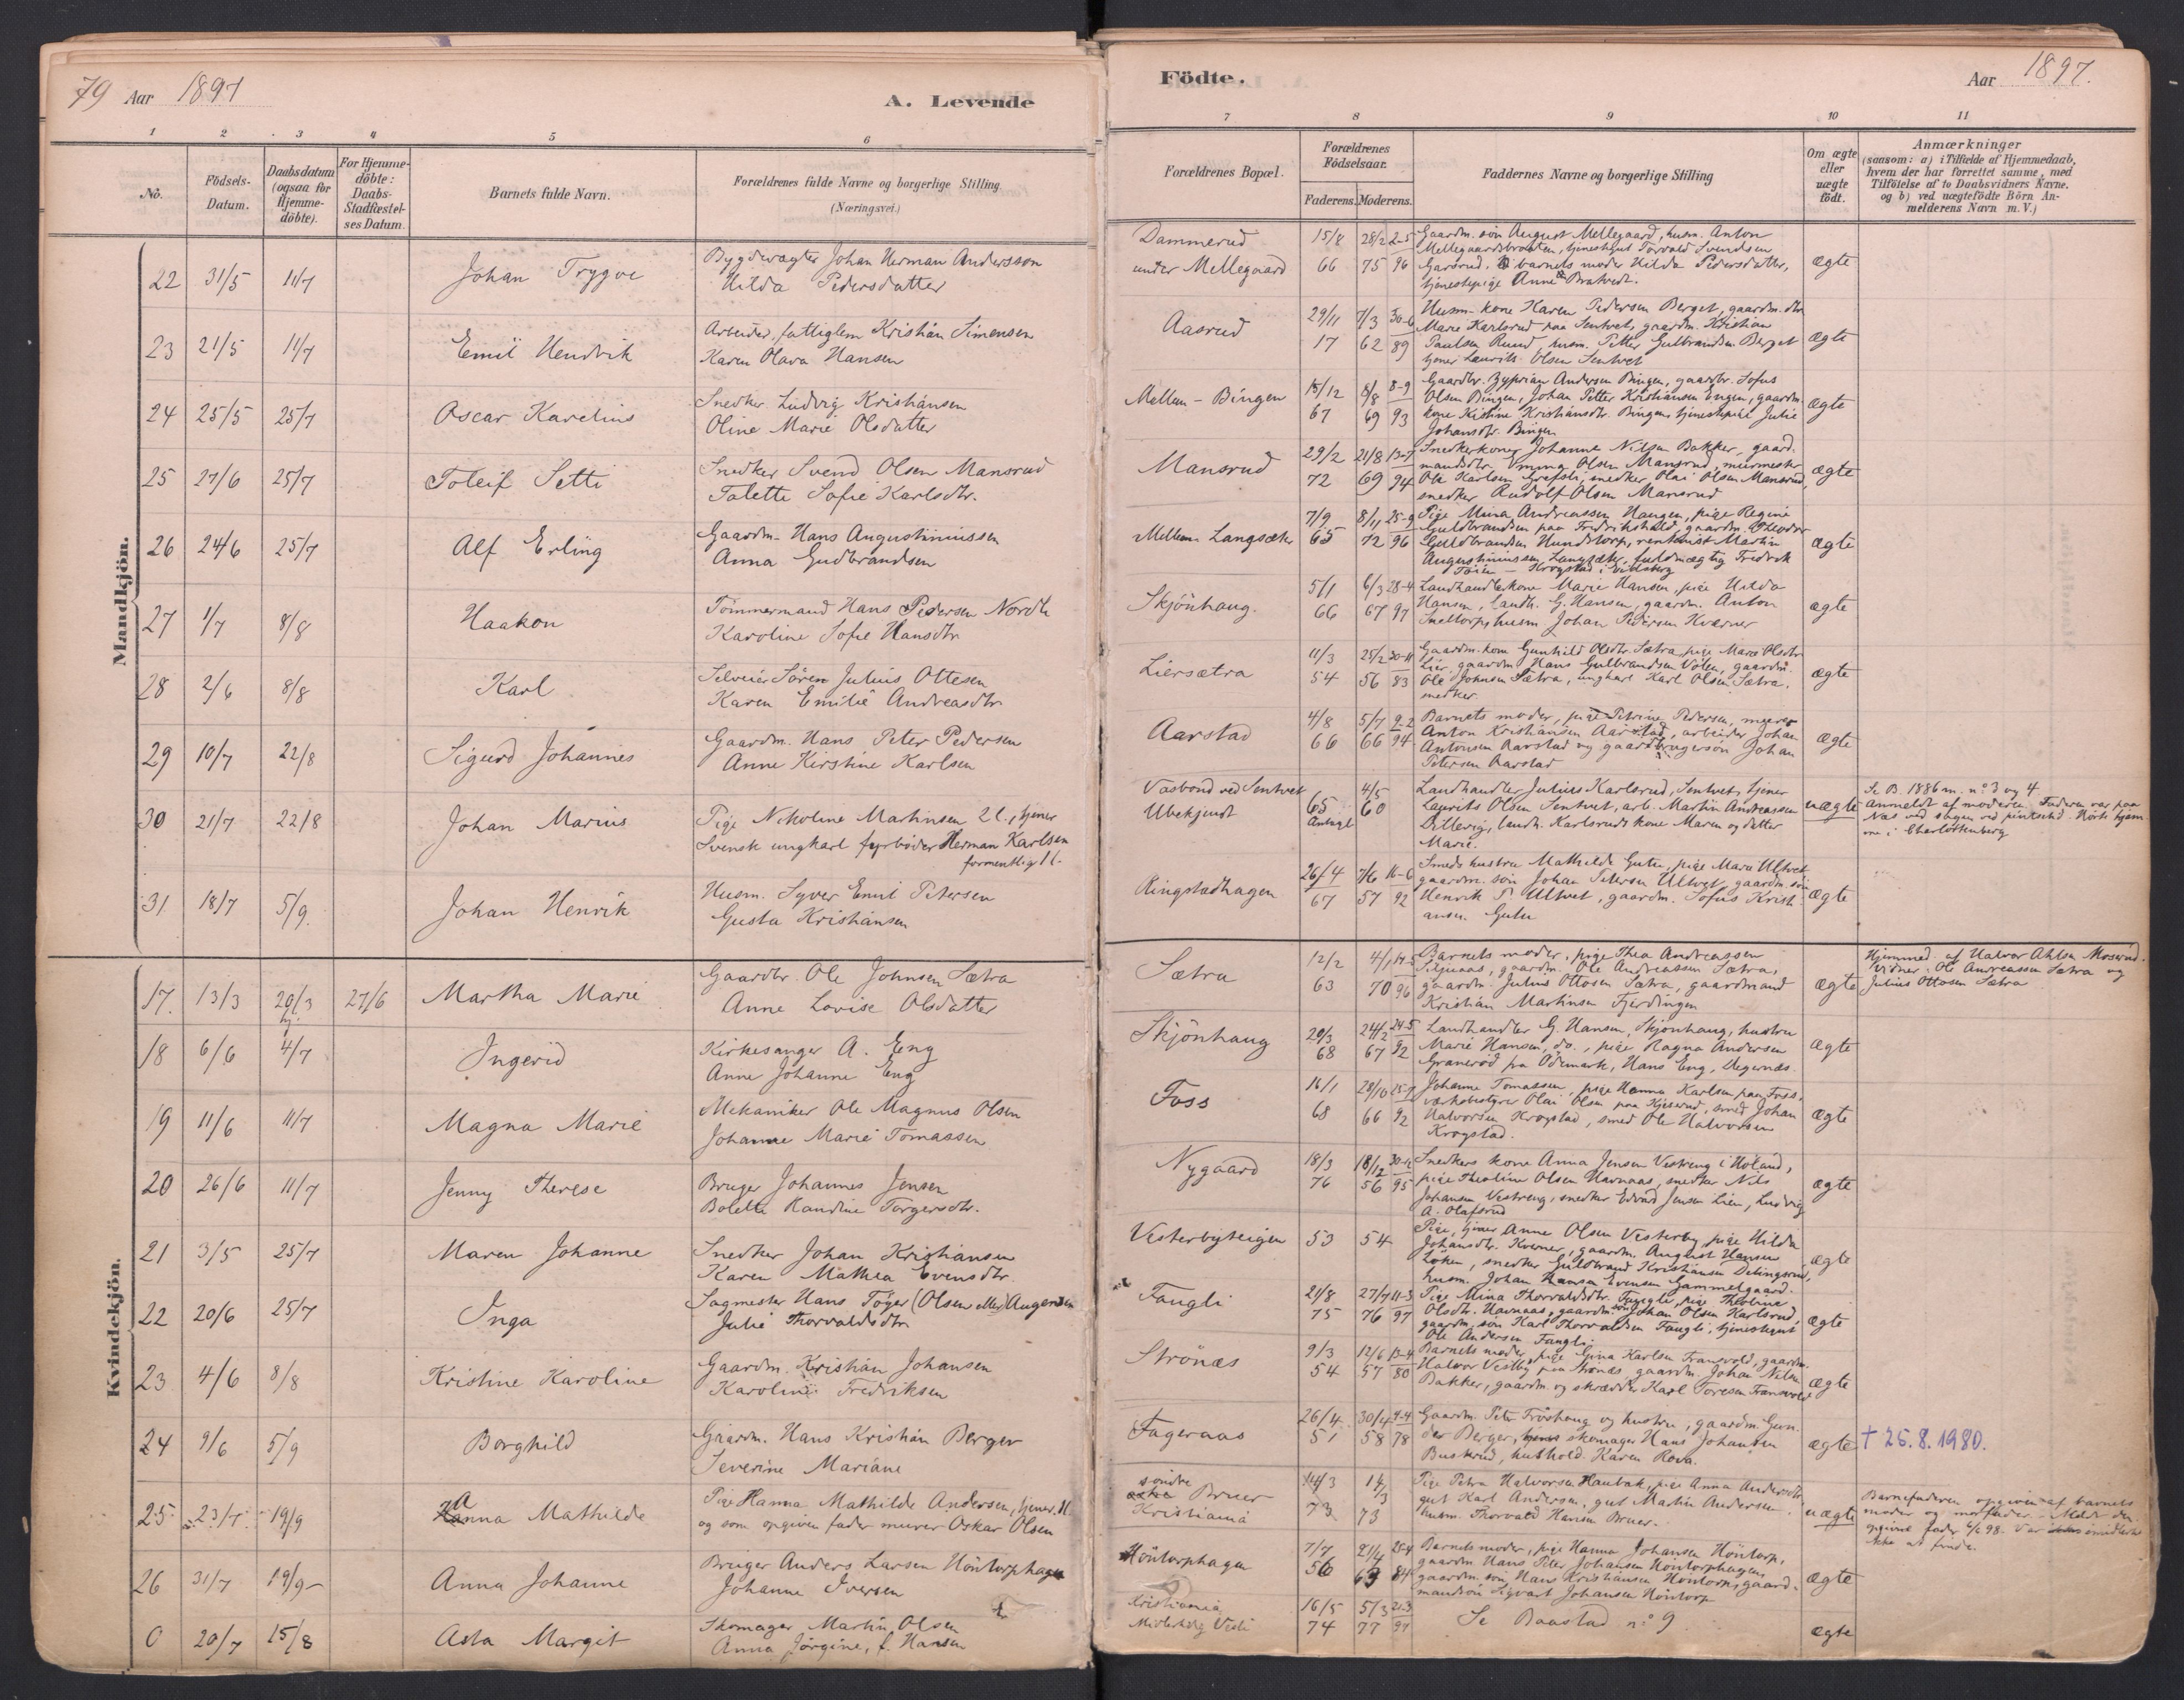 79 Aar 1897
A. Levende
1 2 3 4 5 6
No.
Födsels-Datum.
Daabsdatum (ogsaa för Hjemme-döbte).
For Hjemme-döbte: Daabs-Stadfæstel-ses Datum.
Barnets fulde Navn.
Forældrenes fulde Navne og borgerlige Stilling
(Næringsvei.)
Mandkjön.
22 31/5 11/7 Johan Trygve
Bygdevægter Johan Herman Andersson
Hilda Pedersdatter
23 21/5 11/7 Emil Hendrik
Arbeider, fattiglem Kristian Simensen
Karen Olava Hansen
24 25/5 25/7 Oscar Karelius
Snedker Ludvig Kristiansen
Oline Marie Olsdatter
25 27/6 25/7 Toleif Setti
Snedker Svend Olsen Mansrud
Talette Sofie Karlsdtr.
26 24/6 25/7 Alf Erling
Gaardm. Hans Augustiniussen
Anna Gudbrandsen
27 1/7 8/8 Haakon
Tömmermand Hans Pedersen Nordli
Karoline Sofie Hansdtr
28 2/6 8/8 Karl
Selveier Sören Julius Ottesen
Karen Emilie Andreasdtr
29 10/7 22/8 Sigurd Johannes
Gaardm. Hans Peter Pedersen
Anne Kirstine Karlsen
30 21/7 22/8 Johan Marius
Pige Nikoline Martinsen 2 l., tjener
Svensk ungkarl fyrböder Herman Karlsen
formentlig 1 l.
31 18/7 5/9. Johan Henrik
Husm. Syver Emil Petersen
Gusta Kristiansen
Kvindekjön.
17. 13/3 20/3 hj. 27/6 Martha Marie
Gaardbr. Ole Johnsen Sætra
Anne Lovise Olsdatter
18 6/6 4/7 Ingerid
Kirkesanger A. Eng
Anne Johanne Eng
19 11/6 11/7 Magna Marie
Mekaniker Ole Magnus Olsen
Johanne Marie Tomassen
20 26/6 11/7 Jenny Therese
Bruger Johannes Jensen
Bolette Randine Torgersdtr.
21 3/5 25/7 Maren Johanne
Snedker Johan Kristiansen
Karen Mathea Evensdtr.
22 20/6 25/7 Inga
Sagmester Hans Töger (Olsen eller) Augensen
Julie Thorvaldsdtr
23 4/6 8/8 Kristine Karoline
Gaardm. Kristian Johansen
Karoline Fredriksen
24 9/6 5/9 Borghild
Gaardm. Hans Kristian Berger
Severine Mariane
25 23/7 19/9 Anna Mathilde
Pige Hanna Mathilde Andersen, tjener. 1 l.
og som opgiven fader murer Oskar Olsen
26 31/7 19/9 Anna Johanne
Bruger Anders Larsen Höntorphagen
Johanne Iversen
0 20/7 15/8 Asta Margit
Skomager Martin Olsen
Anna Jörgine, f. Hansen
Födte.
Aar 1897.
7 8 9 10 11
Forældrenes Bopæl.
Forældrenes Födselsaar.
Faderens. Moderens.
Faddernes Navne og borgerlige Stilling
Om ægte eller uægte födt.
Anmærkninger
(saasom: a) i Tilfælde af Hjemmedaab, hvem der har forrettet samme, med Tilföielse af to Daabsvidners Navne. og b) ved uægtefödte Börn An-melderens Navn m. V.)
Dammerud
under Mellegaard
15/8 66 28/2 75 2-5 96
Gaardm. sön August Mellegaard, husm. Anton
Mellegaardsbraaten, tjenestegut Torvald Svendsen
Garsrud, barnets moder Hilda Pedersdatter,
tjenestepige Anne Bratvedt.
ægte
Aasrud
29/11 17 7/3 62 30-6 89
Husm.-kone Karen Pedersen Berget, gaardm. dtr
Marie Karlsrud paa Sentvet, gaardm. Kristian
Paulsen Ruud, husm. Petter Gulbrandsen Berget
tjener Laurits Olsen Sentvet
ægte
Mellem-Bingen
15/12 67 8/8 69 8-9 93
Gaardbr. Zyprian Andersen Bingen, gaardbr. Sofus
Olsen Bingen, Johan Petter Kristiansen Engen, gaardm.
kone Kistine Kristiansdtr. Bingen, tjenestepige Julie
Johansdtr. Bingen
ægte
Mansrud
29/2 72 21/8 69 13-7 94
Snedkerkone Johanne Nilsen Bakker, gaard-
mandsdtr. Emma Olsen Mansrud, murmester
Ole Karlsen Grefsli, snedker Olai Olsen Mansrud,
snedker Rudolf Olsen Mansrud
ægte
Mellem Langsæter
7/9 65 8/11 72 25-9 96
Pige Mina Andreassen Haugen, pige Regine
Guldbrandsen paa Fredrikshald, gaardm. Theodor
Guldbrandsen Hundstorp, rentenist Martin
Augustiniussen Langsæter, fuldmægtig Fredrik
ægte
Skjönhaug.
5/1 66 6/3 67 28-4 97
Landhandlerkone Marie Hansen, pige Hilda
Hansen, landh. G. Hansen, gaardm. Anton
Sneltorp, husm Johan Pedersen Kværner
ægte
Liersætra
11/3 54 25/2 56 30-11 83
Gaardm. kone Gunhild Olsdtr. Sætra, pige Mare Olsdtr
Lier, gaardm Hans Gulbrandsen Völen, gaardm.
Ole Johnsen Sætra, ungkarl Karl Olsen Sætra.
snedker.
ægte
Aarstad
4/8 66 5/7 66 9-2 94
Barnets moder, pige Petrine Pedersen, murer
Anton Kristiansen Aarstad, arbeider Johan
Antonsen Aarstad og gaardbrugersön Johan
Petersen Aarstad
ægte
Vasbond ved Sentvet
Ubekjendt
65 Antagl 4/5 60
Landhandler Julius Karlsrud, Sentvet, tjener
Laurits Olsen Sentvet, arb. Martin Andreassen
Dillevig, landh. Karlsruds kone Maren og datter
Marie.
uægte
Se B. 1886 m. no. 3 og 4
Anmeldt af moderen. Faderen var paa
Næs ved sagen ved pintsetid. Hörte hjem-
me i Charlottenberg
Ringstadhagen
26/4 67 7/6 57 16-6 92
Smeds hustru Mathilde Gutu, pige Marie Ultvet
gaardm. sön Johan Petersen Ultvet, gaardm. sön
Henrik P. Ultvet, gaardm. Sofus Kristi-
ansen Gutu
ægte
Sætra
12/2 63 4/1 70 14-5 96
Barnets moder, pige Thea Andreassen
Siljenaas, gaardm. Ole Andreassen Sætra,
gaardm. Julius Ottosen Sætra, gaardmand
Kristian Martinsen Fjerdingen
ægte
Hjemmed. af Halvor Ahlsen Moserud.
Vidner: Ole Andreassen Sætra og
Julius Ottosen Sætra
Skjönhaug
20/3 68 24/2 67 24-5 92
Landhandler G. Hansen, Skjönhaug, hustru
Marie Hansen, do., pige Ragna Andersen
Graneröd paa Ödemark, Hans Eng, Degernæs.
ægte
Foss
16/1 68 28/10 66 92
Johanne Tomassen, pige Hanna Karlsen paa Foss,
værksbestyrer Olai Olsen paa Kjeserud, smed Johan
Halvorsen Krogstad, smed Ole Halvorsen
Krogstad.
ægte
Nygaard
18/3 76 18/12 56 30-12 95
Snedkers kone Anna Jensen Vestreng i Höland,
pige Theoline Olsen Havnaas, snedker Nils
Johansen Vestreng, snedker Edvard Jensen Lien, Ludvig
A. Olafsrud
ægte
Vesterbyteigen
53 54
Pige, tjener Anne Olsen Vesterby, pige Hilda
Johansdtr. Kverner, gaardm. August Hansen
Löken, snedker Guldbrand Kristiansen Delingsrud,
husm. Johan Hansen Evensen Gammelgaard.
ægte
Fangli
21/8 75 27/7 76 11-3 97
Pige Mina Thorvaldsdtr. Fangli, pige Theoline
Olsdtr. Havnaas, gaardm. sön Johan Olsen Karlsrud,
gaardm. sön Karl Thorvaldsen Fangli, tjenestegut
Ole Andersen Fangli.
ægte
Strönæs
9/3 54 12/6 57 13-4 80
Barnets moder, pige Gina Karlsen Fransvold, gaardm.
Halvor Vestby paa Strönæs, gaardm. Johan Nilsen
Bakker, gaardm. og skrædder Karl Toresen Fransvold
ægte
Fageraas
26/4 51 30/4 58 9-4 78
Gaardm. Peter Fröshaug og hustru, gaardm. Gun-
der Berger, skomager Hans Johansen
Buskrud, hushold. Karen Rova.
ægte
† 25.8.1980.
söndre Bruer
Kristiania
14/3 73 14/3 73
Pige Petra Halvorsen Haubak, pige Anna Andersdtr
gut Karl Andersen, gut Martin Andersen.
husm. Thorvald Hansen Bruer.
uægte
Barnefaderen opgiven af barnets
moder og morfader. Meldt den
opgivne fader 98. Var imidlertid
ikke at finde.
Höntorphagen
7/7 56 21/4 63 25-4 84
Barnets moder, pige Hanna Johansen Höntorp,
gaardm. Hans Peter Johansen Höntorphagen,
gaardm. sön Hans Kristiansen Höntorp, gaard-
mandsön Sigvart Johansen Höntorp
ægte
Kristiania
16/5 74 5/3 77 21-3 97
Se Baastad no. 9
ægte